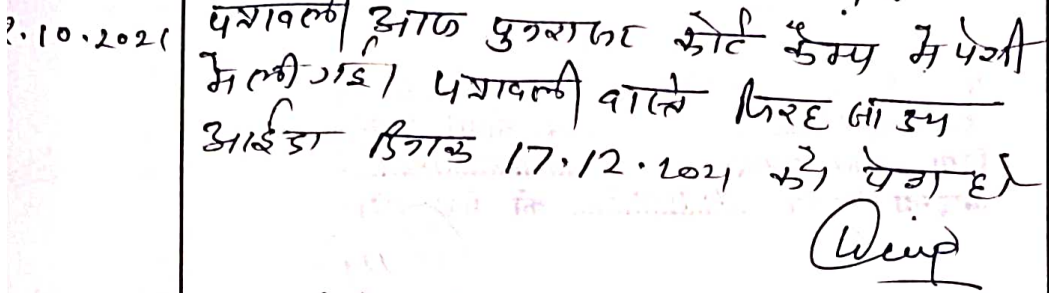 2.10.2021
पत्रावली आज पुनरावट कोर्ट कैम्प में पेशी
में ली गई। पत्रावली वास्ते जिरह साक्ष्य
आईंदा दिनांक 17.12.2021 को पेश हो